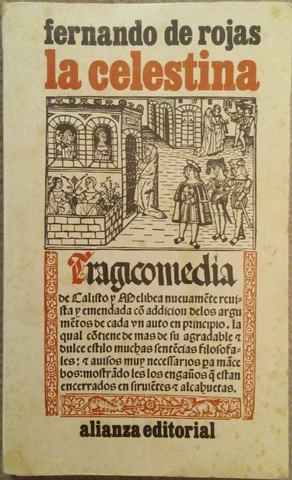 fernando de rojas
la celestina
Tragicomedia
de Calisto y Melibea nueuamẽte reui
sta y emendada cõ addicion delos argu
mẽtos de cada vn auto en principio. la
qual cõtiene de mas de su agradable ⁊
dulce estilo muchas sentẽcias filosofa
les: ⁊ auisos muy necessarios pa mãce
bos: mostrãdo les los engaños q̃ estan
encerrados en siruiẽtes ⁊ alcahuetas.
alianza editorial